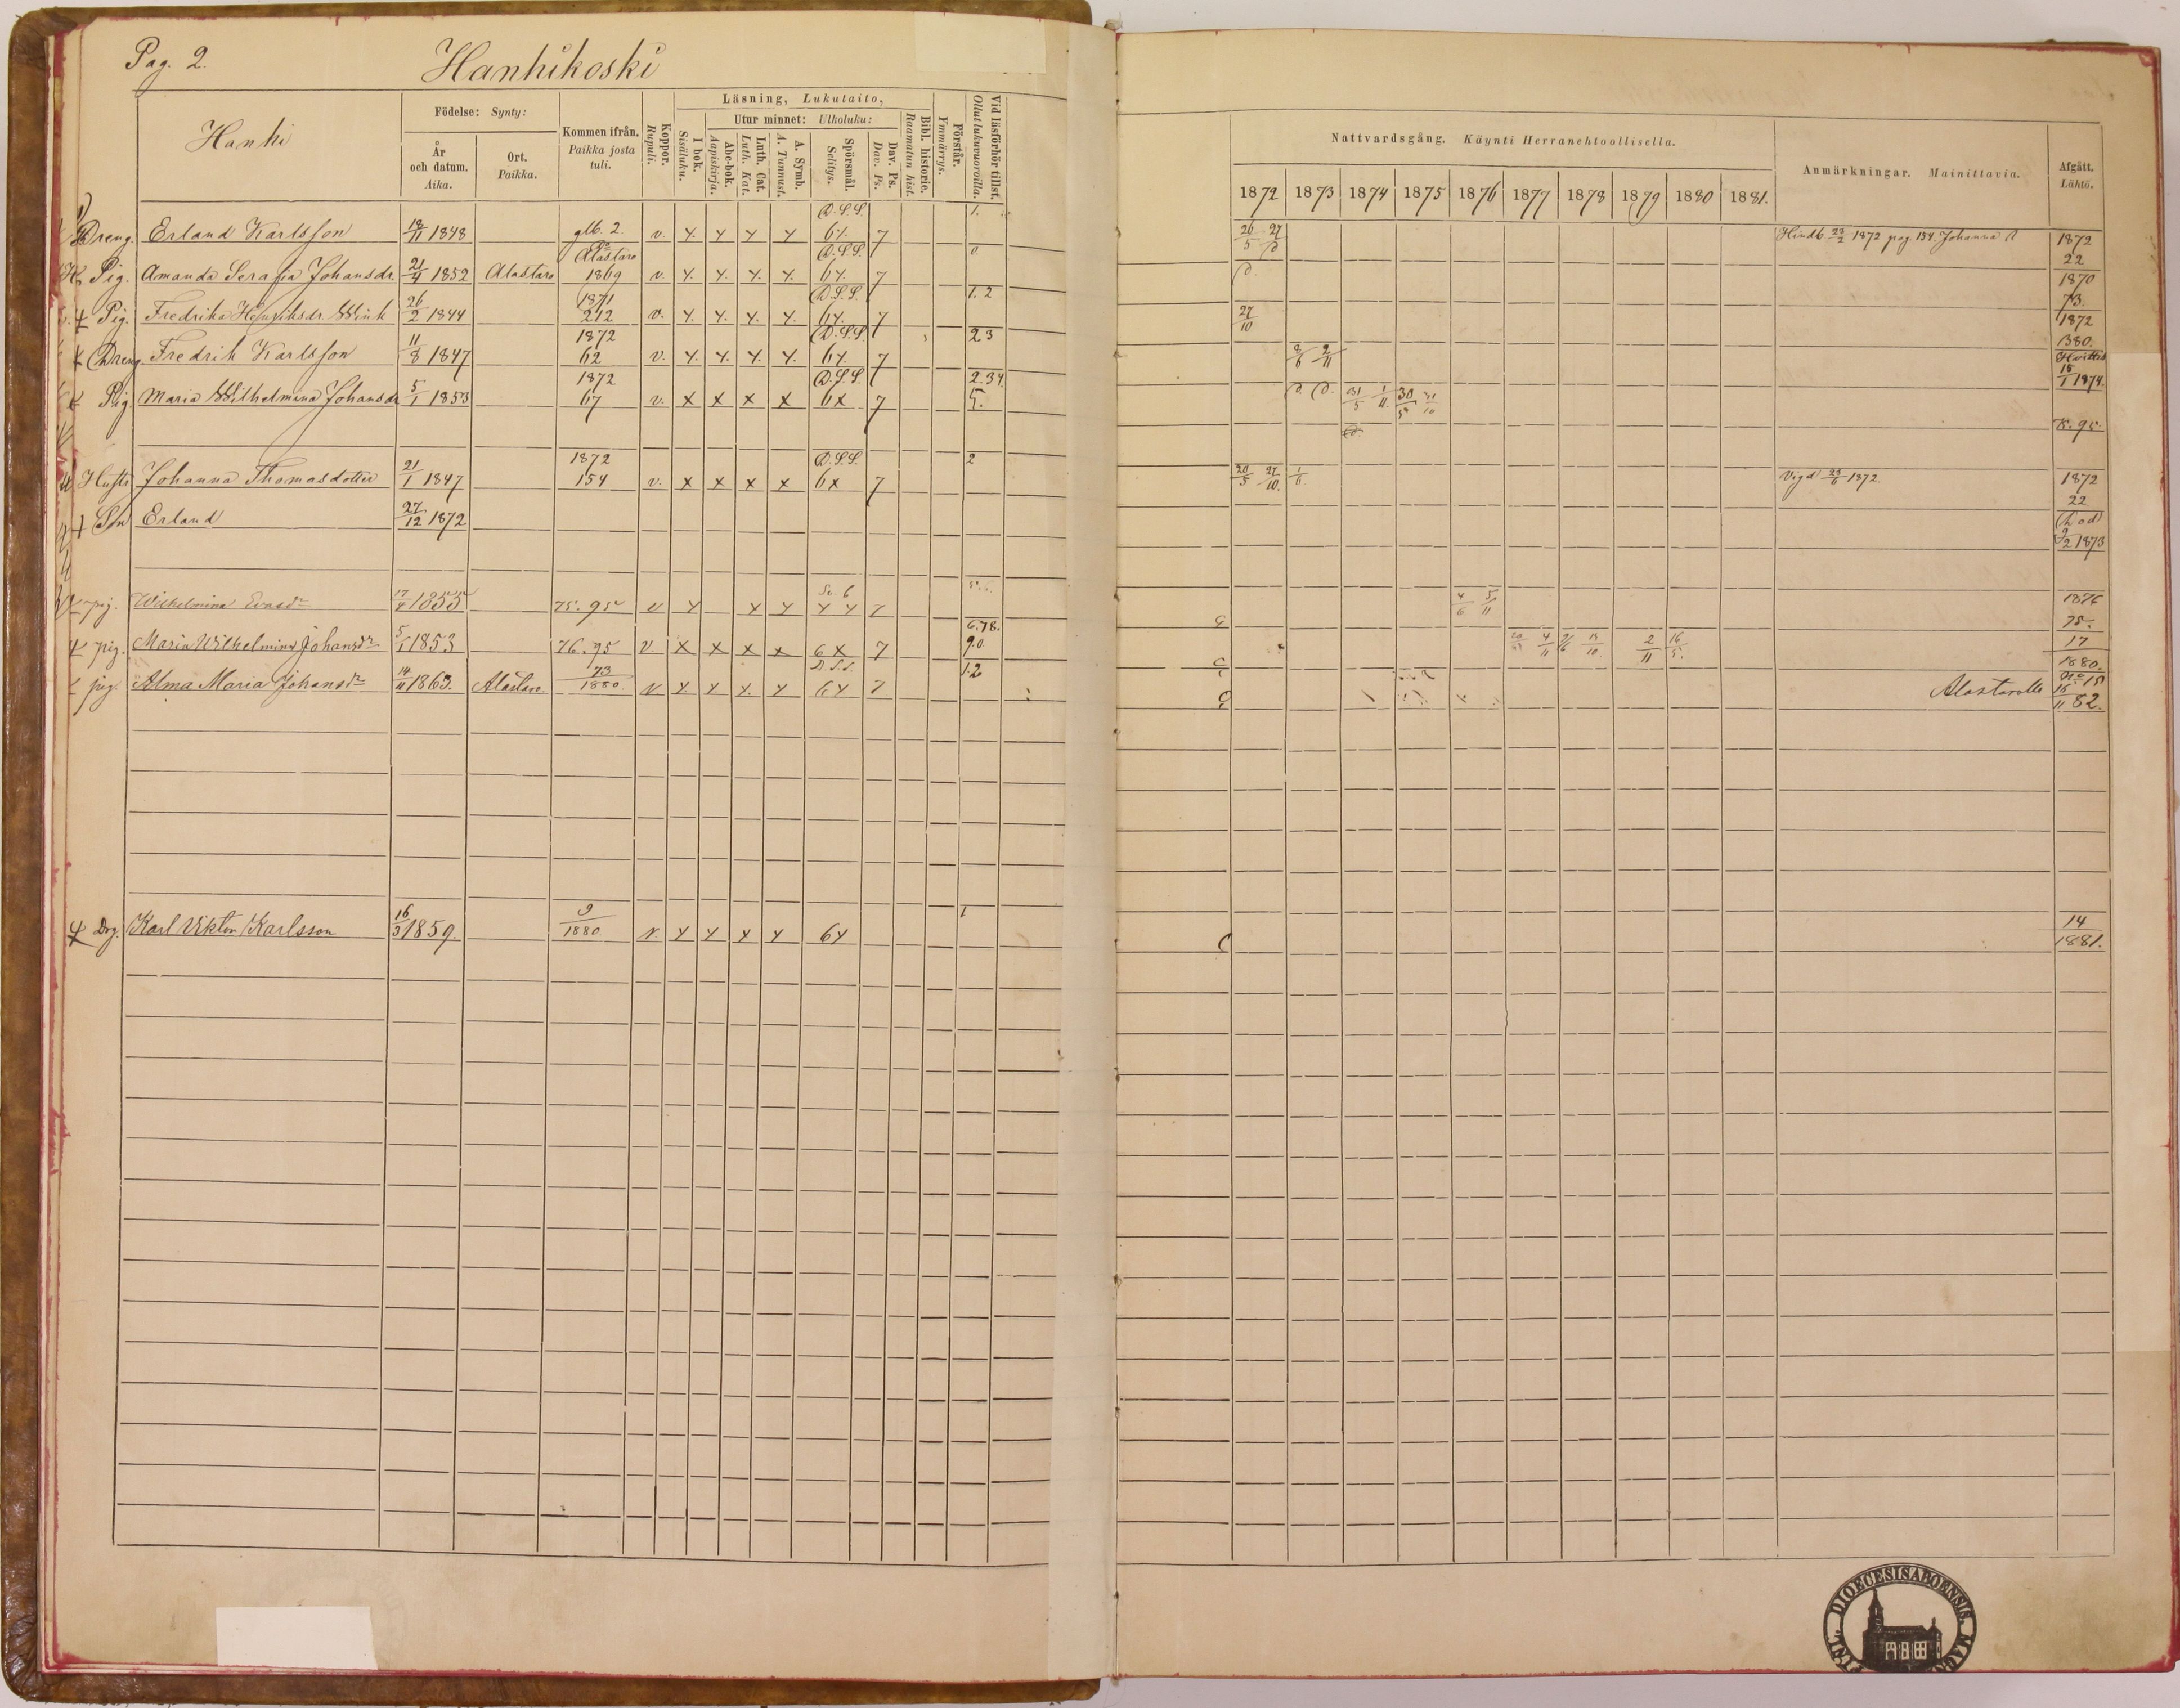 Pag. 2.
Hanhikoski
Hanhi
Födelse: Synty:
År och datum. Aika.
Ort. Paikka.
Kommen ifrån. Paikka josta tuli.
Koppor. Rupuli.
Läsning, Lukutaito,
I bok. Sisäluku.
Utur minnet: Ulkoluku:
Abc-bok. Aapiskirja.
Luth. Cat. Luth. Kat.
A. Symb. A. Tunnust.
Spörsmål. Selitys.
Dav. Ps. Dav. Ps.
Bibl. historie. Raamatun hist.
Förstår. Ymmärrys.
Vid läsförhör tillst. Ollut lukuvuoroilla.
Nattvardsgång. Käynti Herranehtoollisella.
1872 1873 1874 1875 1876 1877 1878 1879 1880 1881.
Anmärkningar. Mainittavia.
Afgått. Lähtö.
Dreng. Erland Karlsson 18/11 1848 glb. 2. v. D.S.S. 6 7 1. 26/5 27 Hindb 23/2 1872 pag. 154. Johanna 1872 22
Pig. Amanda Serafia Johansdr. 21/4 1852 Alastaro Alastaro 1869 v. D.S.S. 7 1870 73.
Pig. Fredrika Henriksdr. Wink 26/2 1844 1871 212 v. D.S.S. 7 1. 2 27/10 1872 1380.
Dreng Fredrik Karlsson 11/8 1847 1872 62 v. D.S.S. 7 2 3 8/6 2/11 15/1 1874.
Pig. Maria Wilhelmina Johansdr 5/1 1853 1872 67 v. x x x x D.S.S. 6x 7 2. 3 4. 5. 31/5 1/11 30/5 31/10 95.
Hustr Johanna Thomasdotter 21/1 1847 1872 154 v. x x x x D.S.S. 6x 7 2 20/5 27/10. 1/6 Vigd 23/6 1872. 1872 22
Son Erland 27/12 1872 (död) 9/2 1873
pig. Wilhelmina Evasdr 17/4 1855 75. 95 v 7 4/6 5/11 1876 75.
pig. Maria Wilhelmina Johansdr 5/1 1853 76. 95 v x x x x 6 x 7 6.78. 9.0. 4/11 2/11 16/5. 17 1880.
pig. Alma Maria Johansdr 14/11 1863. Alastaro 73/1880. v D.S.S. 6 7 1.2 Alastarolle 16/11 82.
Drg. Karl Viktor Karlsson 16/3 1859. 9/1880 v. 6 1 14/1881.
DIOECESIS ABOENSIS.